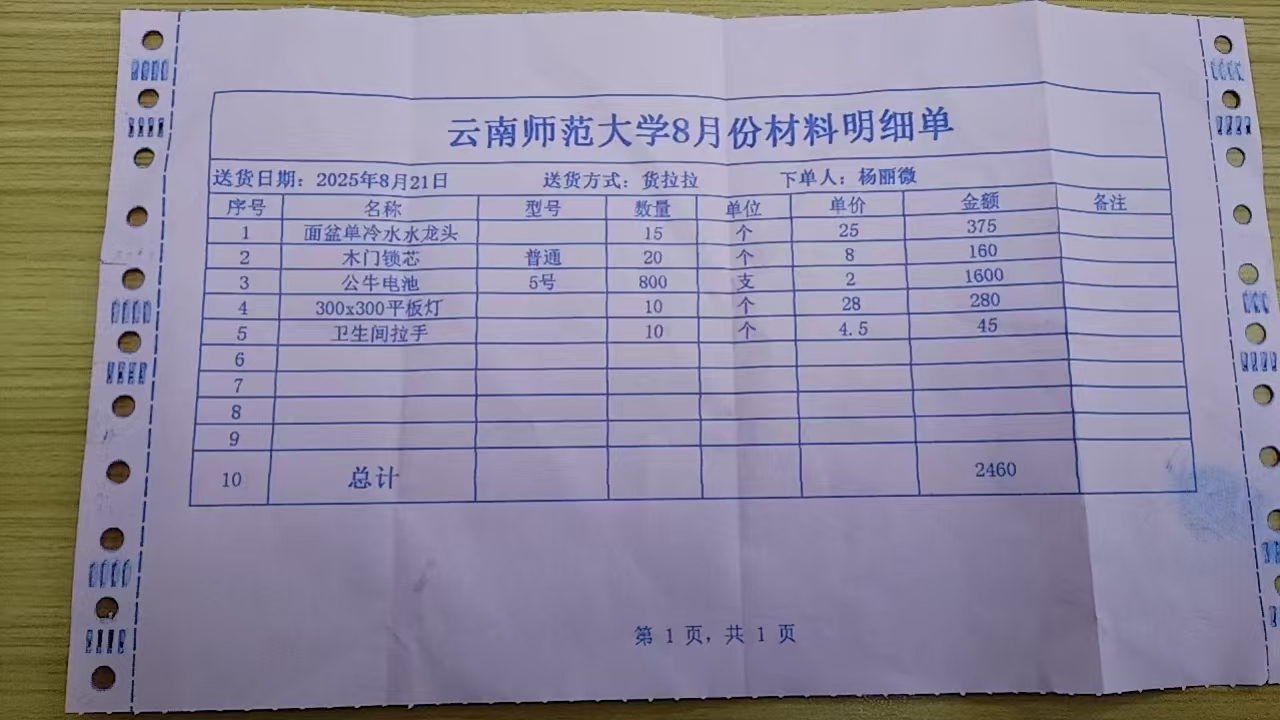 云南师范大学8月份材料明细单
送货日期：2025年8月21日 送货方式：货拉拉 下单人：杨丽微
序号 名称 型号 数量 单位 单价 金额 备注
1 面盆单冷水水龙头 15 个 25 375
2 木门锁芯 普通 20 个 8 160
3 公牛电池 5号 800 支 2 1600
4 300x300平板灯 10 个 28 280
5 卫生间拉手 10 个 4.5 45
6
7
8
9
10 总计 2460
第 1 页，共 1 页